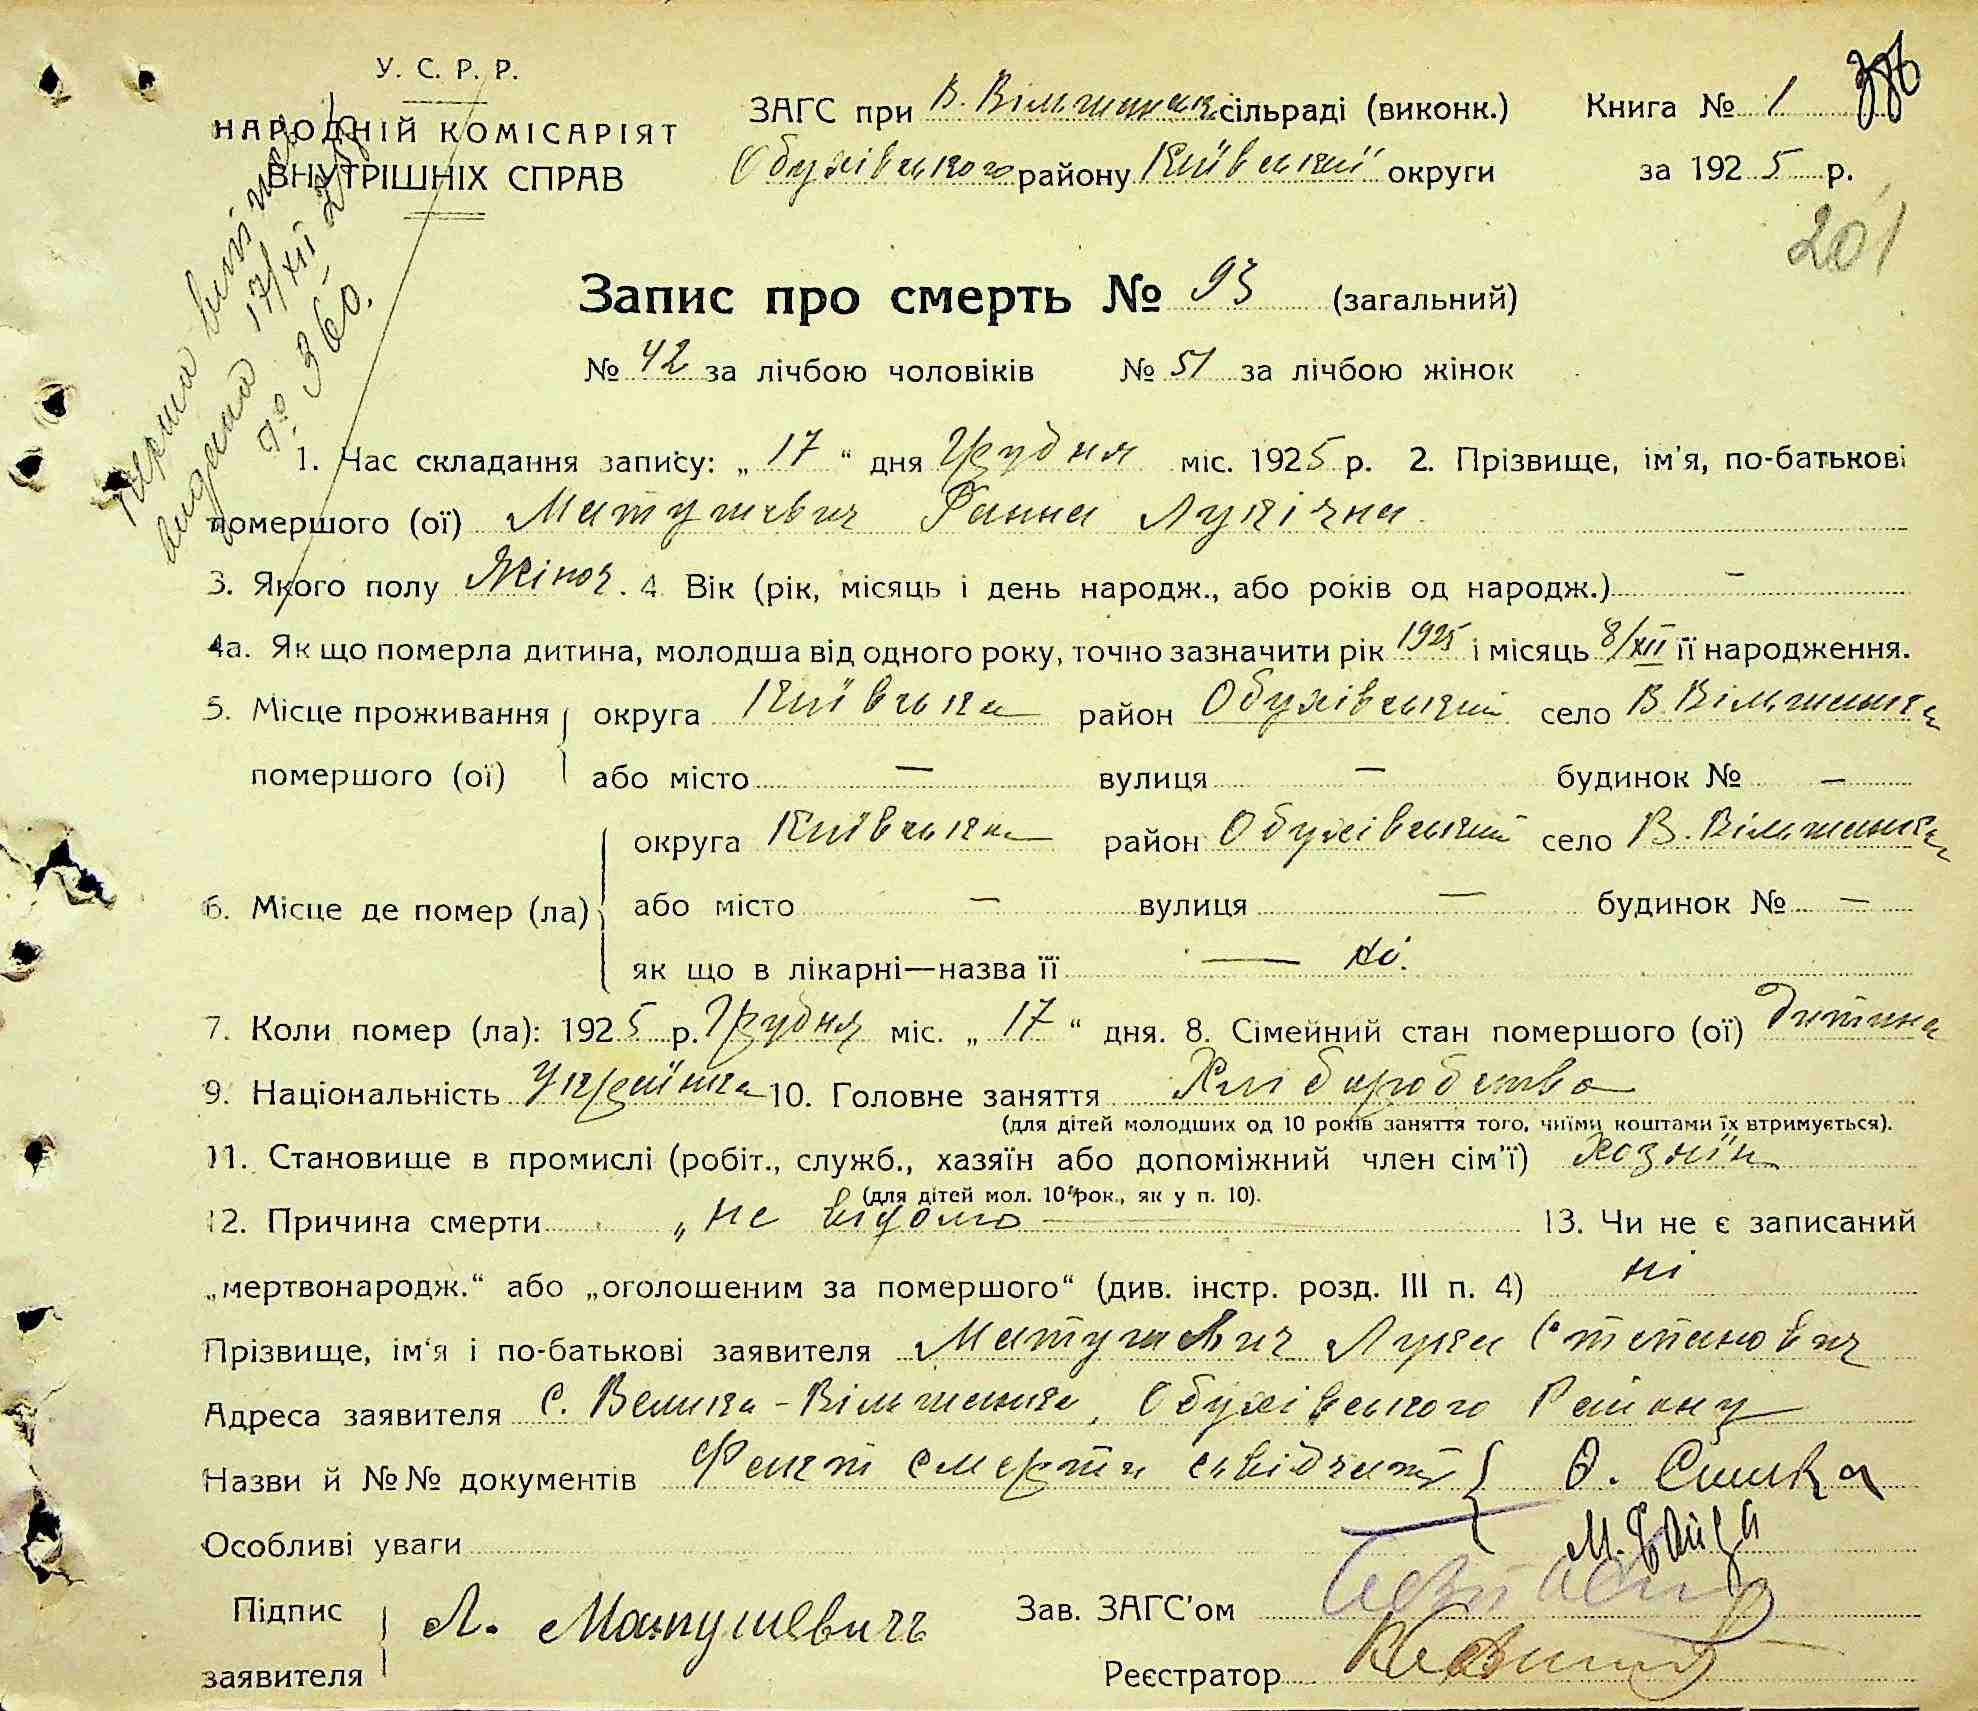 У. С. Р. Р.
НАРОДНІЙ КОМІСАРІЯТ
ВНУТРІШНІХ СПРАВ
ЗАГС при В. Вільшанск сільраді (виконк.)
Обухівського району Київської округи
Книга № 1
за 1925 р.
201
Перша випись
видана 17/XII 25 р.
№ 360.
Запис про смерть № 93 (загальний)
№ 42 за лічбою чоловіків № 51 за лічбою жінок
1. Час складання запису: „ 17 “ дня Грудня міс. 1925 р. 2. Прізвище, ім'я, по-батькові
помершого (ої) Матушевич Ганна Лукічна
3. Якого полу Жіноч. 4. Вік (рік, місяць і день народж., або років од народж.) –
4а. Як що померла дитина, молодша від одного року, точно зазначити рік 1925 і місяць 8/XII її народження.
5. Місце проживання округа Київська район Обухівський село В Вільшанка
помершого (ої) або місто — вулиця — будинок № —
округа Київська район Обухівський село В. Вільшанка
6. Місце де помер (ла) або місто — вулиця — будинок № —
як що в лікарні—назва її — ні.
7. Коли помер (ла): 1925 р. Грудня міс. „ 17 “ дня. 8. Сімейний стан помершого (ої) дитина
9. Національність Українка 10. Головне заняття Хліборобство
(для дітей молодших од 10 років заняття того, чиїми коштами їх втримується).
11. Становище в промислі (робіт., служб., хазяїн або допоміжний член сім'ї) хозяїн
(для дітей мол. 10 рок., як у п. 10).
12. Причина смерти „не відомо 13. Чи не є записаний
„мертвонародж.“ або „оголошеним за помершого“ (див. інстр. розд. III п. 4) ні
Прізвище, ім'я і по-батькові заявителя Матушевич Лука Степанович
Адреса заявителя с. Велика-Вільшанка, Обухівського Району
Назви й №№ документів Факт смерти свідчать { О. Сишка
Особливі уваги М. Байда
Підпис заявителя Л. Матушевичъ
Зав. ЗАГС'ом
Реєстратор